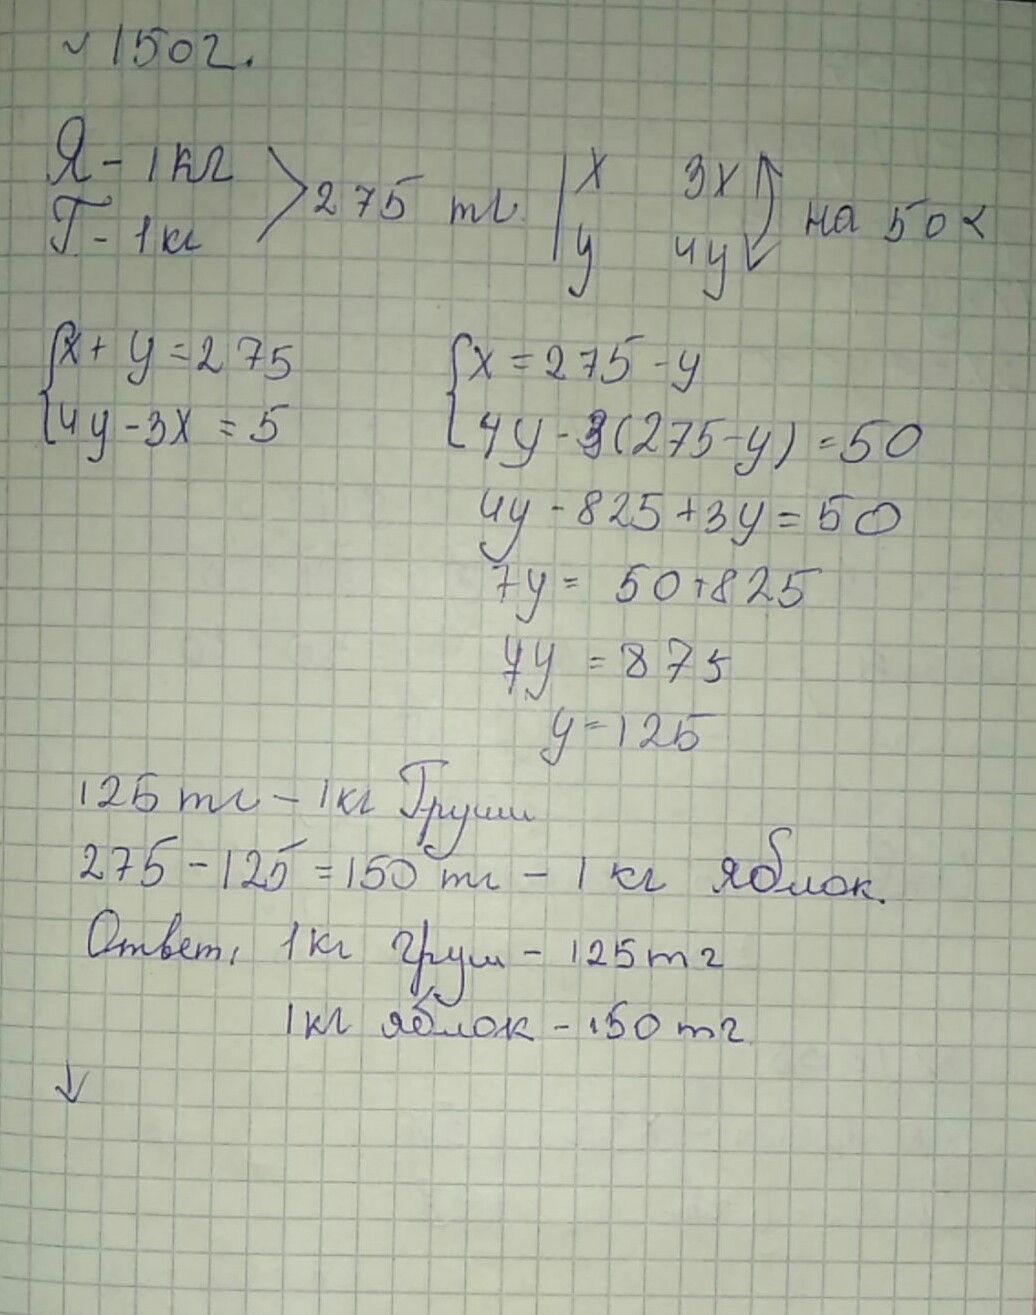 № 1502.
Я - 1 кг > 275 тг | x 3x на 50 <
Г - 1 кг y 4y
{ x + y = 275
4y - 3x = 5
{ x = 275 - y
4y - 3(275 - y) = 50
4y - 825 + 3y = 50
7y = 50 + 825
7y = 875
y = 125
125 тг - 1 кг Груши
275 - 125 = 150 тг - 1 кг яблок.
Ответ, 1 кг груш - 125 тг
1 кг яблок - 150 тг
↓